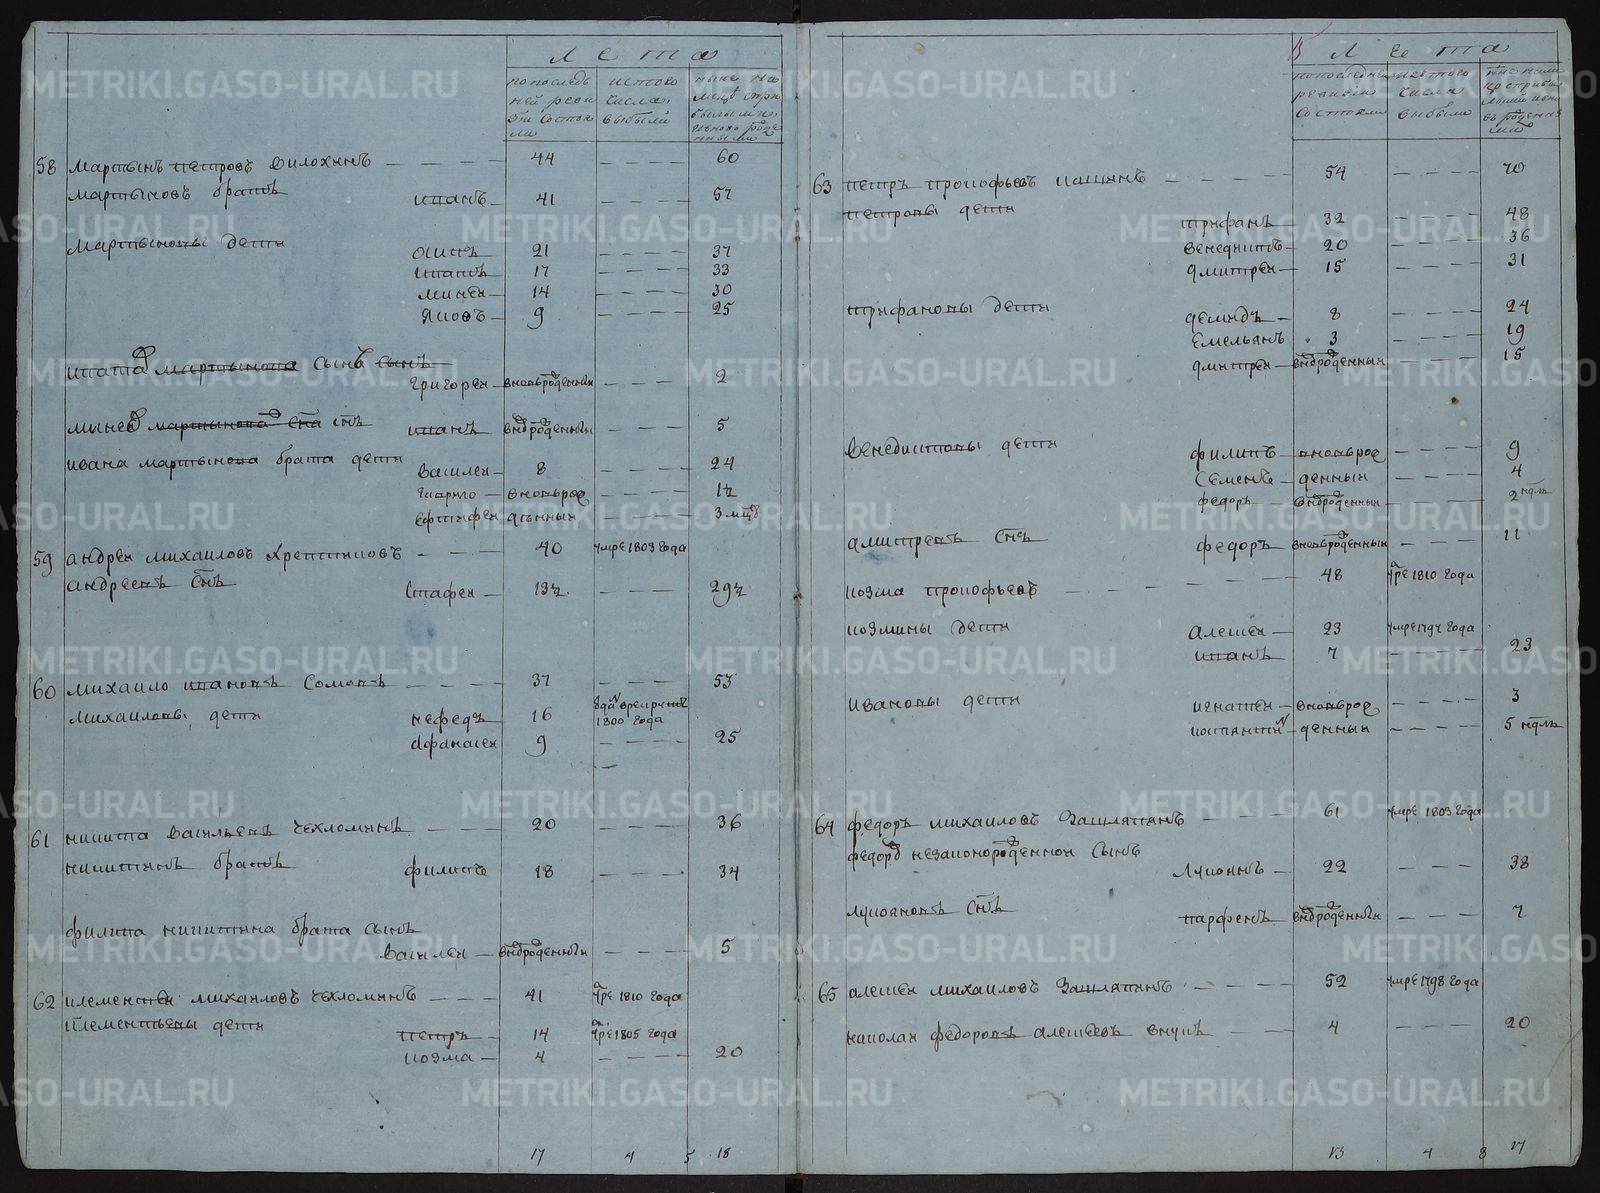 Лета
по последней ревизии состояли
из того числа выбыли
ныне на лицо с прибылыми и вновь рожденными
58 Мартынъ Петровъ Вилохинъ 44 60
Мартыновъ братъ Иванъ 41 57
Мартыновы дети Осипъ 21 37
Ипатъ 17 33
Миней 14 30
Яковъ 9 25
Ипата Мартынова сынъ сынъ
Григорей вновьрожденный 2
Минея Мартынова сна снъ Иванъ внврожденный 5
Ивана Мартынова брата дети
Василей 8 24
Гаврило вновьрож 12
Ефтифей денныи 3 мцд
59 Андрей Михаиловъ Хрептиковъ 40 умре 1803 года
Андреевъ снъ Стафей 13½ 29½
60 Михаило Ивановъ Сомовъ 37 53
Михаиловы дети Нефедъ 16 1800 года
Афанасей 9 25
61 Никита Васильевъ Чехломинъ 20 36
Никитинъ братъ Филипъ 18 34
Филипа Никитина брата сынъ
Василей внврожденный 5
62 Клементей Михаиловъ Чехломинъ 41 умре 1810 года
Клементьевы дети Петръ 14 умре 1805 года
Козма 4 20
17 4 5 18
Лета
по последней ревизии состояли
из того числа выбыли
63 Петръ Прокофьевъ Пашинъ 54 70
Петровы дети Трифанъ 32 48
Венедиктъ 20 36
Дмитрей 15 31
Трифановы дети Демидъ 8 24
Емельянъ 3 19
Дмитрей внврожденныи 15
Венедиктовы дети Филипъ вновьрож 9
Семенъ денныи 4
Федоръ внврожденныи 2 ндль
Дмитревъ снъ Федоръ вновьрожденныи 11
Козма Прокофьевъ 48 умре 1810 года
Козмины дети Алексей 23 умре 1797 года
Иванъ 7 23
Ивановы дети Игнатей вновьрож 3
Костянтин денныи 5 ндль
64 Федоръ Михаиловъ Зашляпинъ 61 умре 1803 года
Федора незаконорожденной сынъ
Лукоянъ 22 38
Лукояновъ снъ Парфенъ внврожденныи 7
65 Алексей Михаиловъ Зашляпинъ 52 умре 1798 года
Николай Федоровъ Алексеевъ внукъ 4 20
13 4 8 17
METRIKI.GASO-URAL.RU